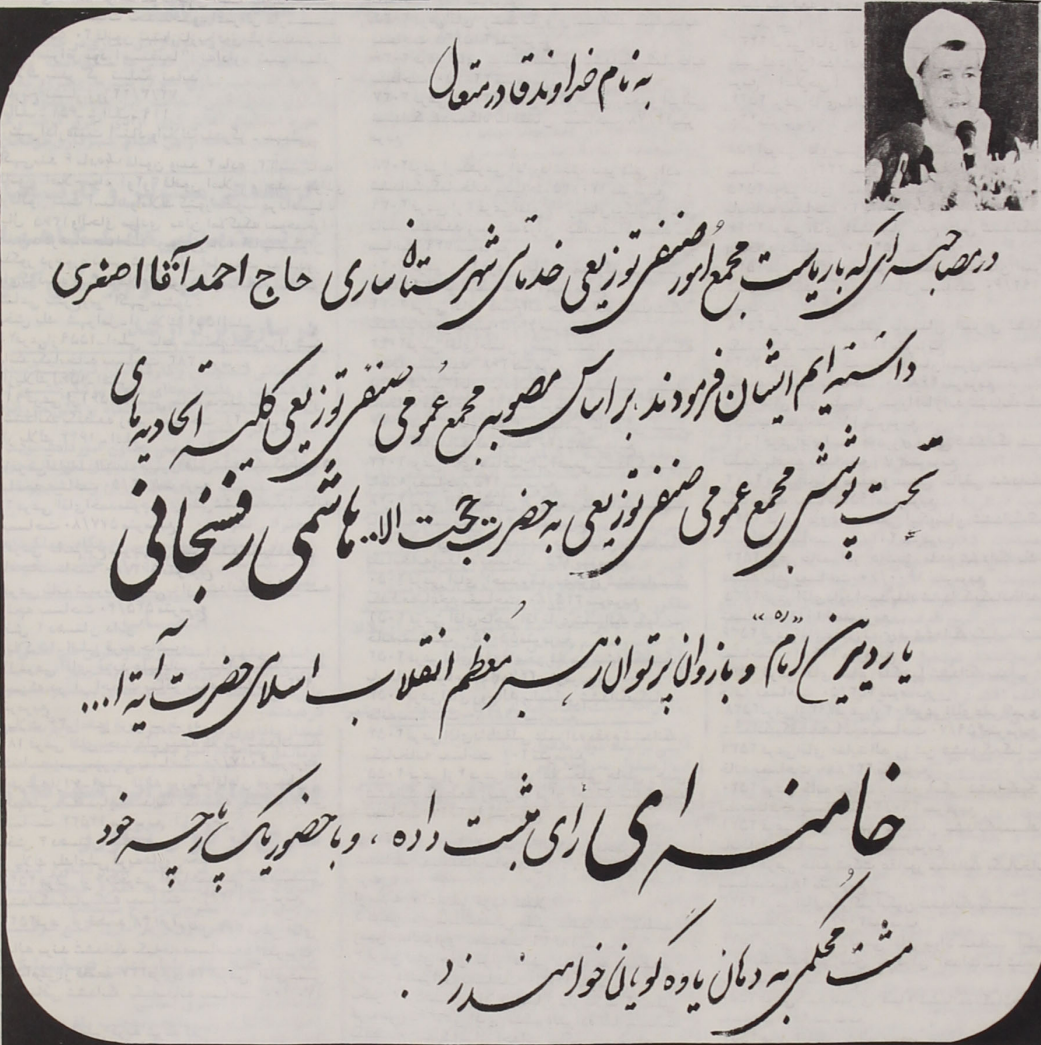 به نام خداوند قادر متعال
در مصاحبه ای که با ریاست مجمع امور صنفی توزیعی خدماتی شهرستان ساری حاج احمد آقا اصغری
داشته ایم ایشان فرمودند بر اساس مصوبه مجمع عمومی صنفی توزیعی کلیه اتحادیه های
تحت پوشش مجمع عمومی صنفی توزیعی به حضرت حجت الا.. هاشمی رفسنجانی
یار دیرین امام «ره» و بازوان پرتوان رهبر معظم انقلاب اسلامی حضرت آیة ا...
خامنه ای رای مثبت داده ، و با حضور یک پارچه خود
مشت محکمی به دهان یاوه گویانی خواهند زد .